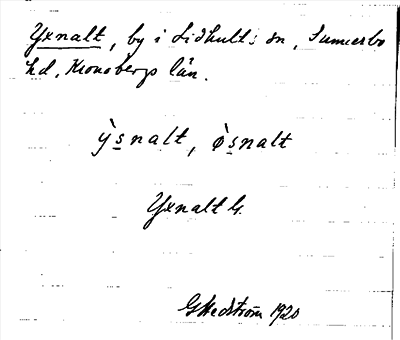 Yxnalt, by i Lidhults sn, Sunnerbo
hd, Kronobergs län.
ỳsnalt, ø̀snalt
Yxnalt G.
GHedström 1920